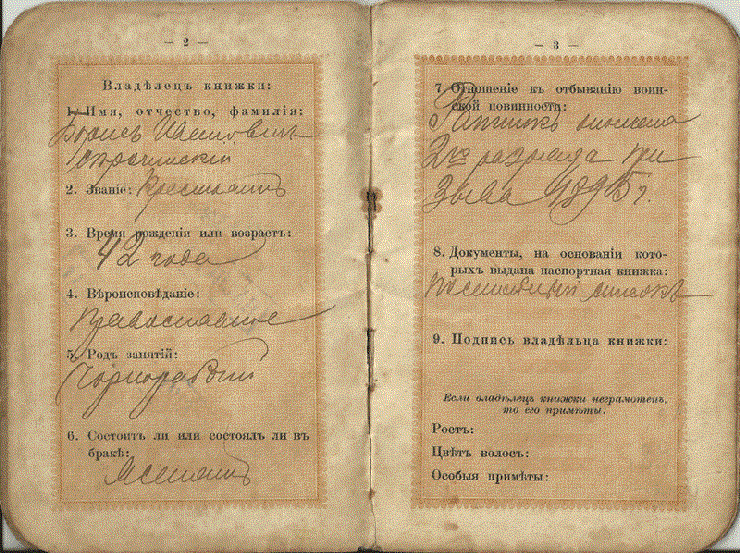 — 2 —
Владѣлецъ книжки:
1. Имя, отчество, фамилія:
Борисъ
2. Званіе: Крестьянинъ
3. Время рожденія или возрастъ:
42 года
4. Вѣроисповѣданіе:
Православное
5. Родъ занятій:
Чернорабочій
6. Состоитъ ли или состоялъ ли въ
бракѣ:
Женатъ
— 3 —
7. Отношеніе къ отбыванію воин-
ской повинности:
Ратникъ ополченія
2го разряда при
зыва 1895 г.
8. Документы, на основаніи кото-
рыхъ выдана паспортная книжка:
Посемейный списокъ
9. Подпись владѣльца книжки:
Если владѣлецъ книжки неграмотенъ,
то его примѣты.
Ростъ:
Цвѣтъ волосъ:
Особыя примѣты: